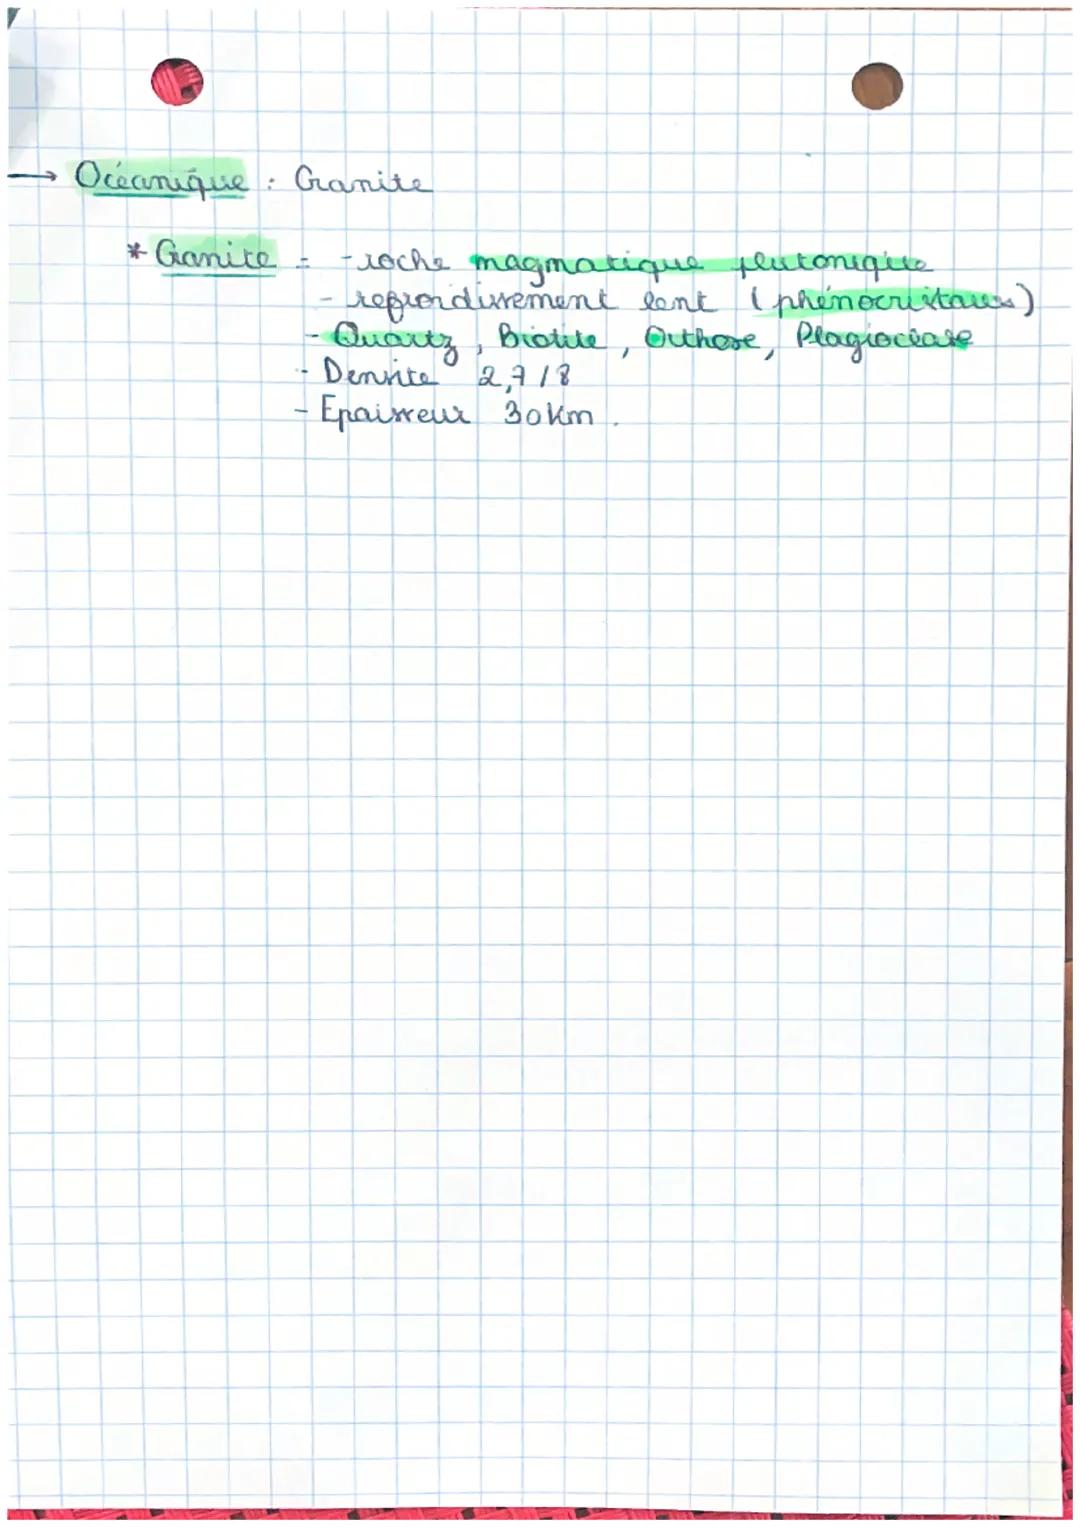 → Océanique : Granite
* Granite = - roche magmatique plutonique
- refroidissement lent (phénocristaux)
- Quartz, Biotite, Orthose, Plagioclase
- Densité 2,7/8
- Epaisseur 30km.